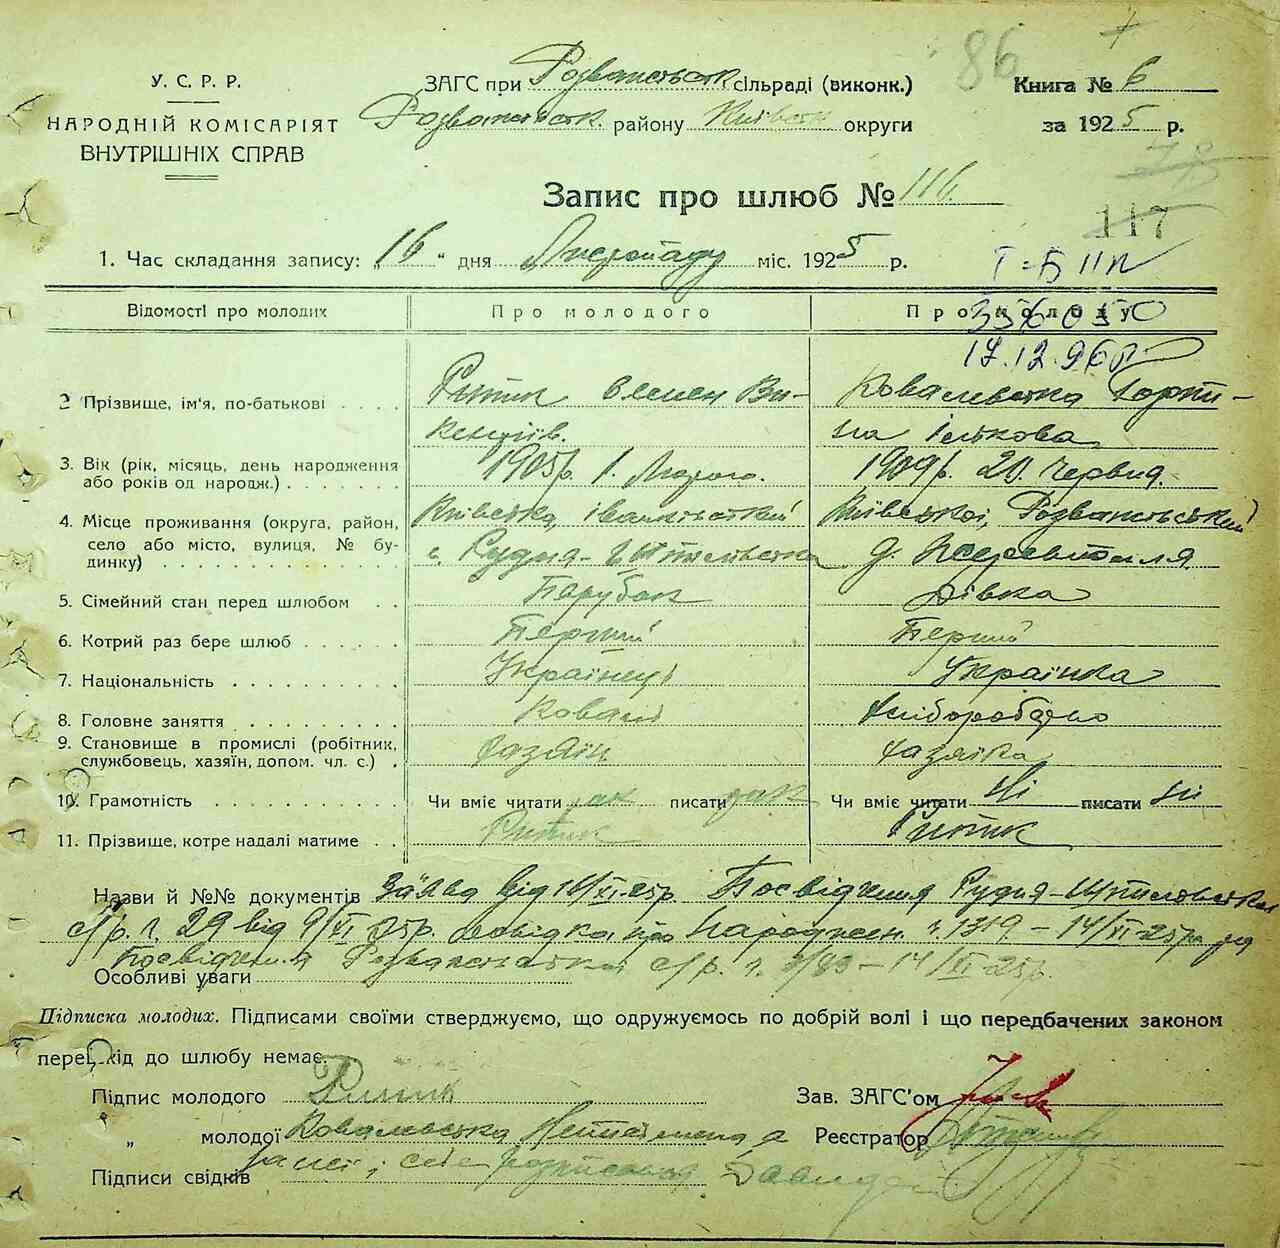 86
У. С. Р. Р.
НАРОДНІЙ КОМІСАРІЯТ
ВНУТРІШНІХ СПРАВ
ЗАГС при Розважівськ сільраді (виконк.)
Розважівськ. району Київськ округи
Книга № 6
за 1925 р.
Запис про шлюб № 116.
117
1. Час складання запису: „16“ дня Листопаду міс. 1925 р.
Відомості про молодих Про молодого Про молоду
336050
17.12.960
2 Прізвище, ім'я, по-батькові Ритик Ви- Ковалевська Горпи-
кентіїв. на Ількова
3. Вік (рік, місяць, день народження 1905р. 1. Лютого. 1909р. 20. Червня.
або років од народж.)
4. Місце проживання (округа, район, Київська, Іванківський Київської, Розважівський
село або місто, вулиця, № бу- с. Рудня-
динку)
5. Сімейний стан перед шлюбом Парубок Дівка
6. Котрий раз бере шлюб Перший Перший
7. Національність Українець Українка
8. Головне заняття Коваль хліборобство
9. Становище в промислі (робітник, хазяїн хазяїка
службовець, хазяїн, допом. чл. с.)
10. Грамотність Чи вміє читати так писати так Чи вміє читати ні писати ні
11. Прізвище, котре надалі матиме Ритик Ритик
Назви й №№ документів Заява від 16/XI-25р. Посвідчення Рудня-
с/р. ч. 29 від 9/XI 25р. довідка про народжен. ч. 1319 – 14/XI-25р.
Посвідчення Розважівської с/р. ч. – 14/XI-25р.
Особливі уваги
Підписка молодих. Підписами своїми стверджуємо, що одружуємось по добрій волі і що передбачених законом
перешкід до шлюбу немає.
Підпис молодого Ритик Зав. ЗАГС'ом
„ молодої Ковалевська Неписьменна а Реєстратор
Підписи свідків